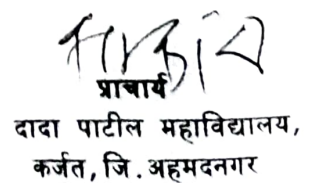 प्राचार्य
दादा पाटील महाविद्यालय,
कर्जत, जि. अहमदनगर